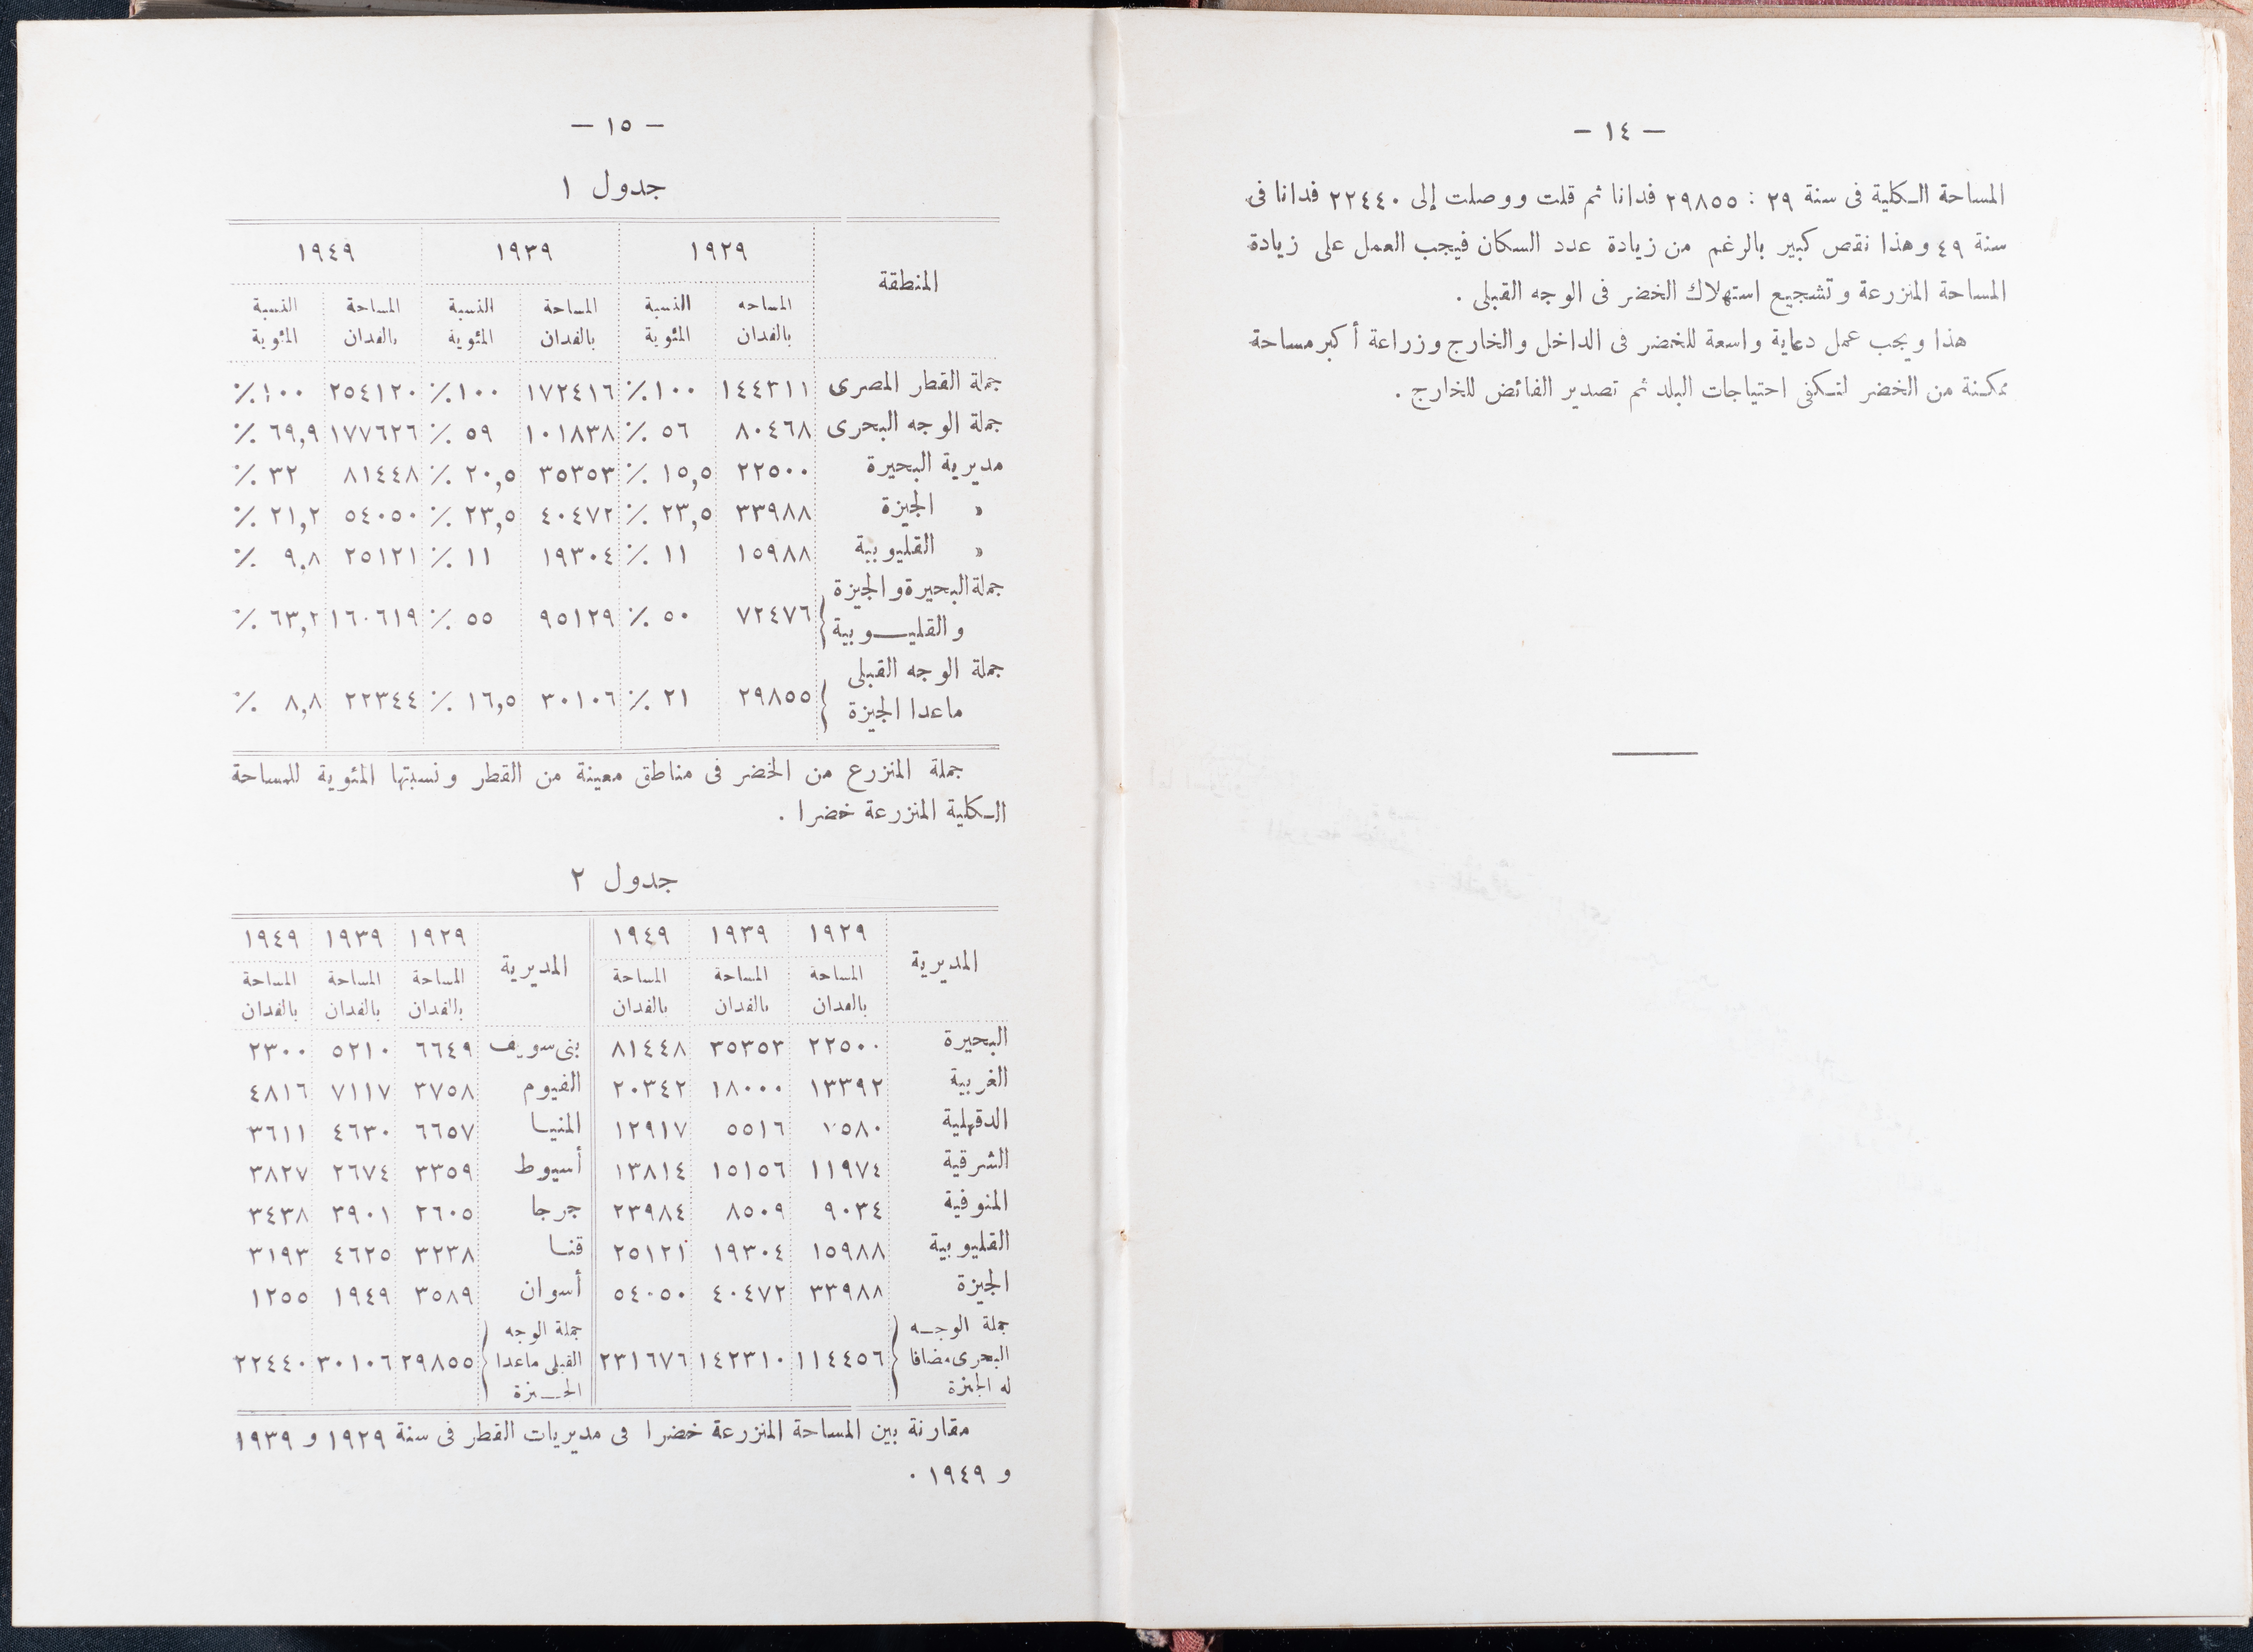 — ١٤ —
المساحة الكلية فى سنة ٢٩ : ٢٩٨٥٥ فدانا ثم قلت ووصلت إلى ٢٢٤٤٠ فدانا فى
سنة ٤٩ وهذا نقص كبير بالرغم من زيادة عدد السكان فيجب العمل على زيادة
المساحة المنزرعة وتشجيع استهلاك الخضر فى الوجه القبلى .
هذا ويجب عمل دعاية واسعة للخضر فى الداخل والخارج وزراعة أكبر مساحة
ممكنة من الخضر لتكفى احتياجات البلد ثم تصدير الفائض للخارج .
— ١٥ —
جدول ١
المنطقة ١٩٢٩ ١٩٣٩ ١٩٤٩
المساحه النسبة المساحة النسبة المساحة النسبة
بالفدان المئوية بالفدان المئوية بالفدان المئوية
جملة القطر المصرى ١٤٤٣١١ ١٠٠ ٪ ١٧٢٤١٦ ١٠٠ ٪ ٢٥٤١٢٠ ١٠٠ ٪
جملة الوجه البحرى ٨٠٤٦٨ ٥٦ ٪ ١٠١٨٣٨ ٥٩ ٪ ١٧٧٦٢٦ ٦٩,٩ ٪
مديرية البحيرة ٢٢٥٠٠ ١٥,٥ ٪ ٣٥٣٥٣ ٢٠,٥ ٪ ٨١٤٤٨ ٣٢ ٪
» الجيزة ٣٣٩٨٨ ٢٣,٥ ٪ ٤٠٤٧٢ ٢٣,٥ ٪ ٥٤٠٥٠ ٢١,٢ ٪
» القليوبية ١٥٩٨٨ ١١ ٪ ١٩٣٠٤ ١١ ٪ ٢٥١٢١ ٩,٨ ٪
جملة البحيرة والجيزة
والقليوبية ٧٢٤٧٦ ٥٠ ٪ ٩٥١٢٩ ٥٥ ٪ ١٦٠٦١٩ ٦٣,٢ ٪
جملة الوجه القبلى
ماعدا الجيزة ٢٩٨٥٥ ٢١ ٪ ٣٠١٠٦ ١٦,٥ ٪ ٢٢٣٤٤ ٨,٨ ٪
جملة المنزرع من الخضر فى مناطق معينة من القطر ونسبتها المئوية للمساحة
الكلية المنزرعة خضرا .
جدول ٢
المديرية ١٩٢٩ ١٩٣٩ ١٩٤٩ المديرية ١٩٢٩ ١٩٣٩ ١٩٤٩
المساحة المساحة المساحة المساحة المساحة المساحة
بالفدان بالفدان بالفدان بالفدان بالفدان بالفدان
البحيرة ٢٢٥٠٠ ٣٥٣٥٣ ٨١٤٤٨ بنى سويف ٦٦٤٩ ٥٢١٠ ٢٣٠٠
الغربية ١٣٣٩٢ ١٨٠٠٠ ٢٠٣٤٢ الفيوم ٣٧٥٨ ٧١١٧ ٤٨١٦
الدقهلية ٥٥١٦ ١٢٩١٧ المنيا ٦٦٥٧ ٤٦٣٠ ٣٦١١
الشرقية ١١٩٧٤ ١٥١٥٦ ١٣٨١٤ أسيوط ٣٣٥٩ ٢٦٧٤ ٣٨٢٧
المنوفية ٩٠٣٤ ٨٥٠٩ ٢٣٩٨٤ جرجا ٢٦٠٥ ٣٩٠١ ٣٤٣٨
القليوبية ١٥٩٨٨ ١٩٣٠٤ ٢٥١٢١ قنا ٣٢٣٨ ٤٦٢٥ ٣١٩٣
الجيزة ٣٣٩٨٨ ٤٠٤٧٢ ٥٤٠٥٠ أسوان ٣٥٨٩ ١٩٤٩ ١٢٥٥
جملة الوجه جملة الوجه
البحرى مضافا ١١٤٤٥٦ ١٤٢٣١٠ ٢٣١٦٧٦ القبلى ماعدا ٢٩٨٥٥ ٣٠١٠٦ ٢٢٤٤٠
له الجيزة الجيزة
مقارنة بين المساحة المنزرعة خضرا فى مديريات القطر فى سنة ١٩٢٩ و ١٩٣٩
و ١٩٤٩ .